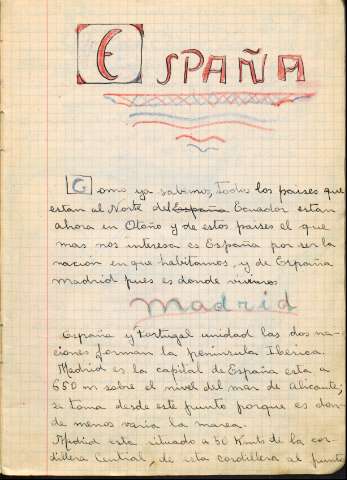 ESPAÑA
Como ya sabemos, todos los paises que
estan al Norte del España Ecuador estan
ahora en Otoño y de estos paises el que
mas nos interesa es España por ser la
nacion en que habitamos, y de España
madrid pues es donde vivimos.
Madrid
España y Portugal unidad las dos na-
ciones forman la peninsula Iberica.
Madrid es la capital de España esta a
650 m sobre el nivel del mar de Alicante;
se toma desde este punto porque es don-
de menos varia la marea.
Madrid esta situado a 50 Kmts de la cor-
dillera Central, de esta cordillera al punto